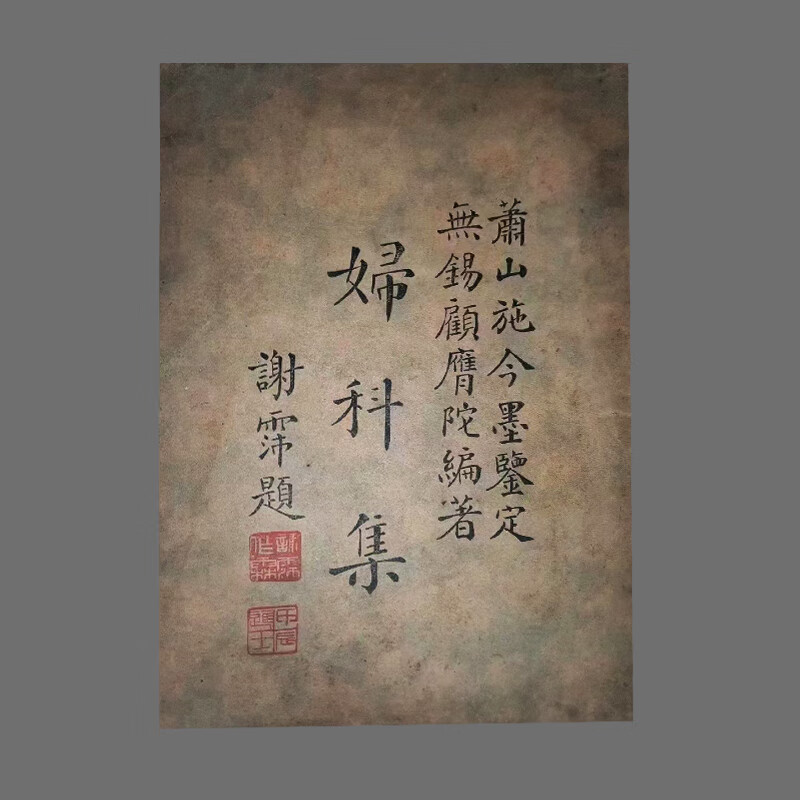 蕭山施今墨鑒定
無錫顧膺陀編著
婦科集
謝霈題